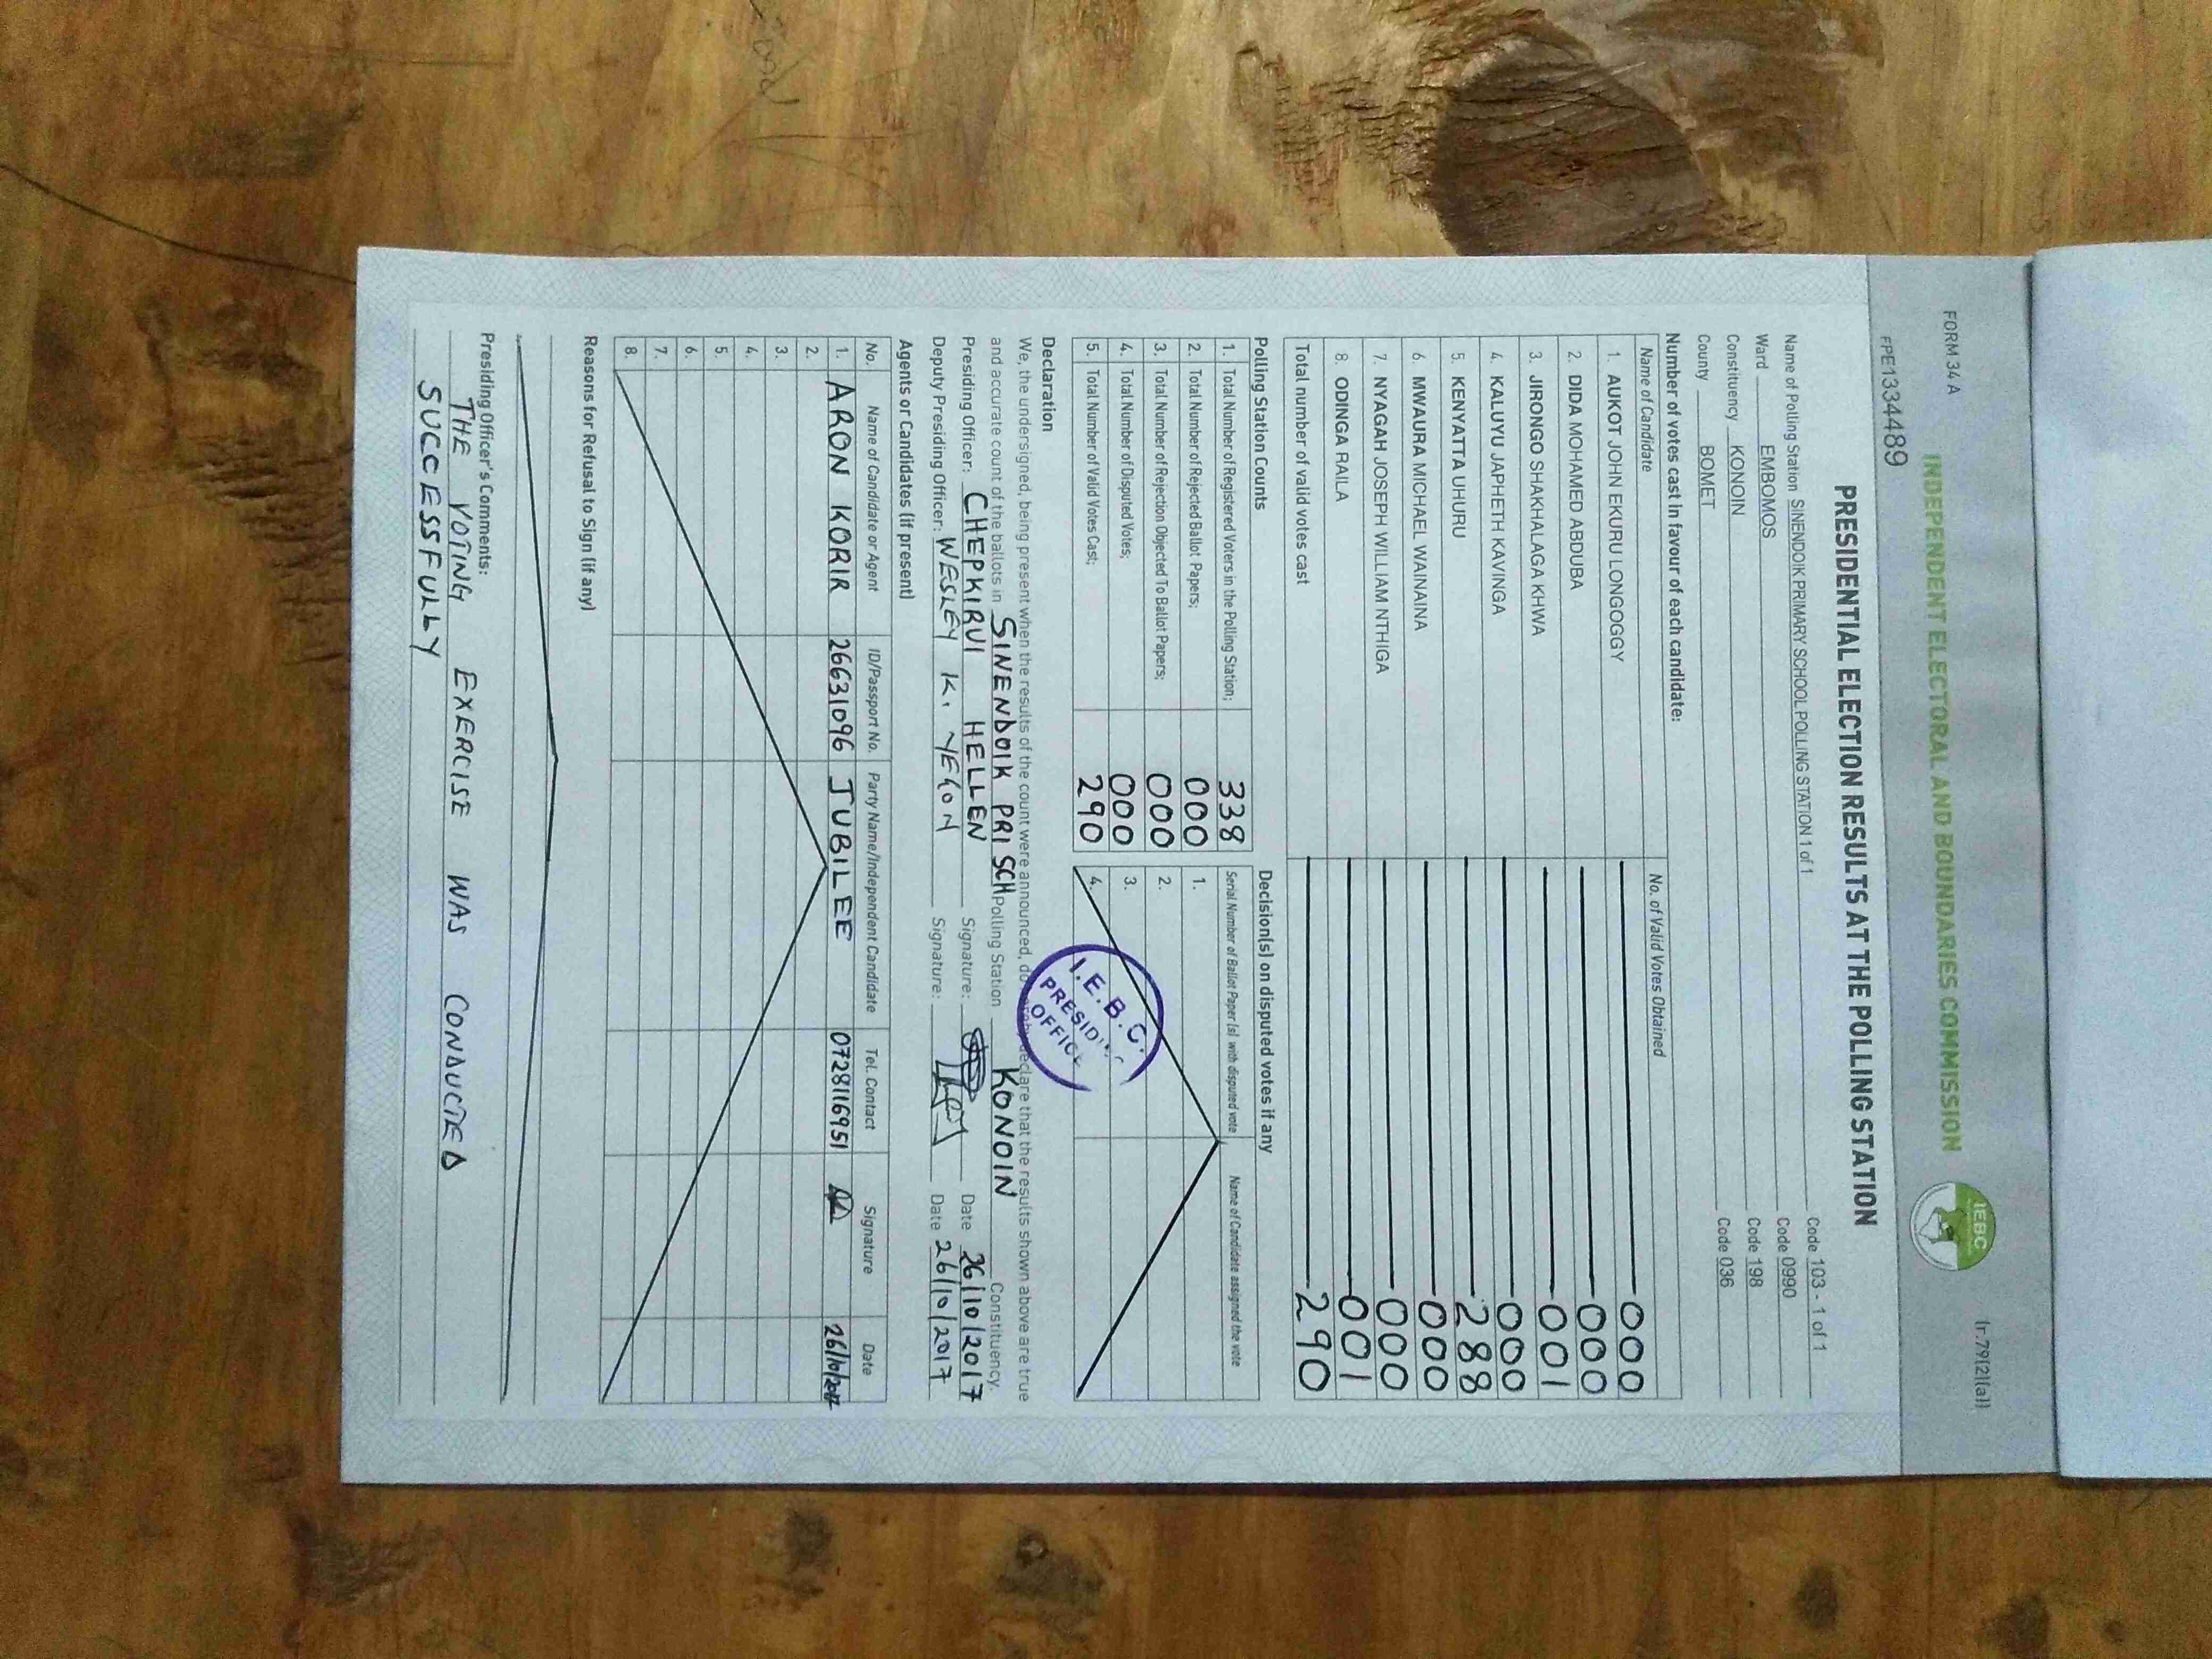 FORM 34 A
(r.79(2)(a))
INDEPENDENT ELECTORAL AND BOUNDARIES COMMISSION
IEBC
FPE1334489
PRESIDENTIAL ELECTION RESULTS AT THE POLLING STATION
Name of Polling Station SINENDOIK PRIMARY SCHOOL POLLING STATION 1 of 1 Code 103 - 1 of 1
Ward EMBOMOS Code 0990
Constituency KONOIN Code 198
County BOMET Code 036
Number of votes cast in favour of each candidate:
Name of Candidate No. of Valid Votes Obtained
1. AUKOT JOHN EKURU LONGOGGY 000
2. DIDA MOHAMED ABDUBA 000
3. JIRONGO SHAKHALAGA KHWA 001
4. KALUYU JAPHETH KAVINGA 000
5. KENYATTA UHURU 288
6. MWAURA MICHAEL WAINAINA 000
7. NYAGAH JOSEPH WILLIAM NTHIGA 000
8. ODINGA RAILA 001
Total number of valid votes cast 290
Polling Station Counts
1. Total Number of Registered Voters in the Polling Station; 338
2. Total Number of Rejected Ballot Papers; 000
3. Total Number of Rejection Objected To Ballot Papers; 000
4. Total Number of Disputed Votes; 000
5. Total Number of Valid Votes Cast; 290
Decision(s) on disputed votes if any
Serial Number of Ballot Paper (s) with disputed vote Name of Candidate assigned the vote
1.
2.
3.
4.
I.E.B.C.
PRESIDING
OFFICE
Declaration
We, the undersigned, being present when the results of the count were announced, do hereby declare that the results shown above are true
and accurate count of the ballots in SINENDOIK PRI SCH Polling Station KONOIN Constituency.
Presiding Officer: CHEPKIRUI HELLEN Signature: Date 26/10/2017
Deputy Presiding Officer: WESLEY K. YEGON Signature: Date 26/10/2017
Agents or Candidates (if present)
No. Name of Candidate or Agent ID/Passport No. Party Name/Independent Candidate Tel. Contact Signature Date
1. ARON KORIR 26631096 JUBILEE 0728116951 26/10/2017
2.
3.
4.
5.
6.
7.
8.
Reasons for Refusal to Sign (if any)
Presiding Officer's Comments:
THE VOTING EXERCISE WAS CONDUCTED
SUCCESSFULLY